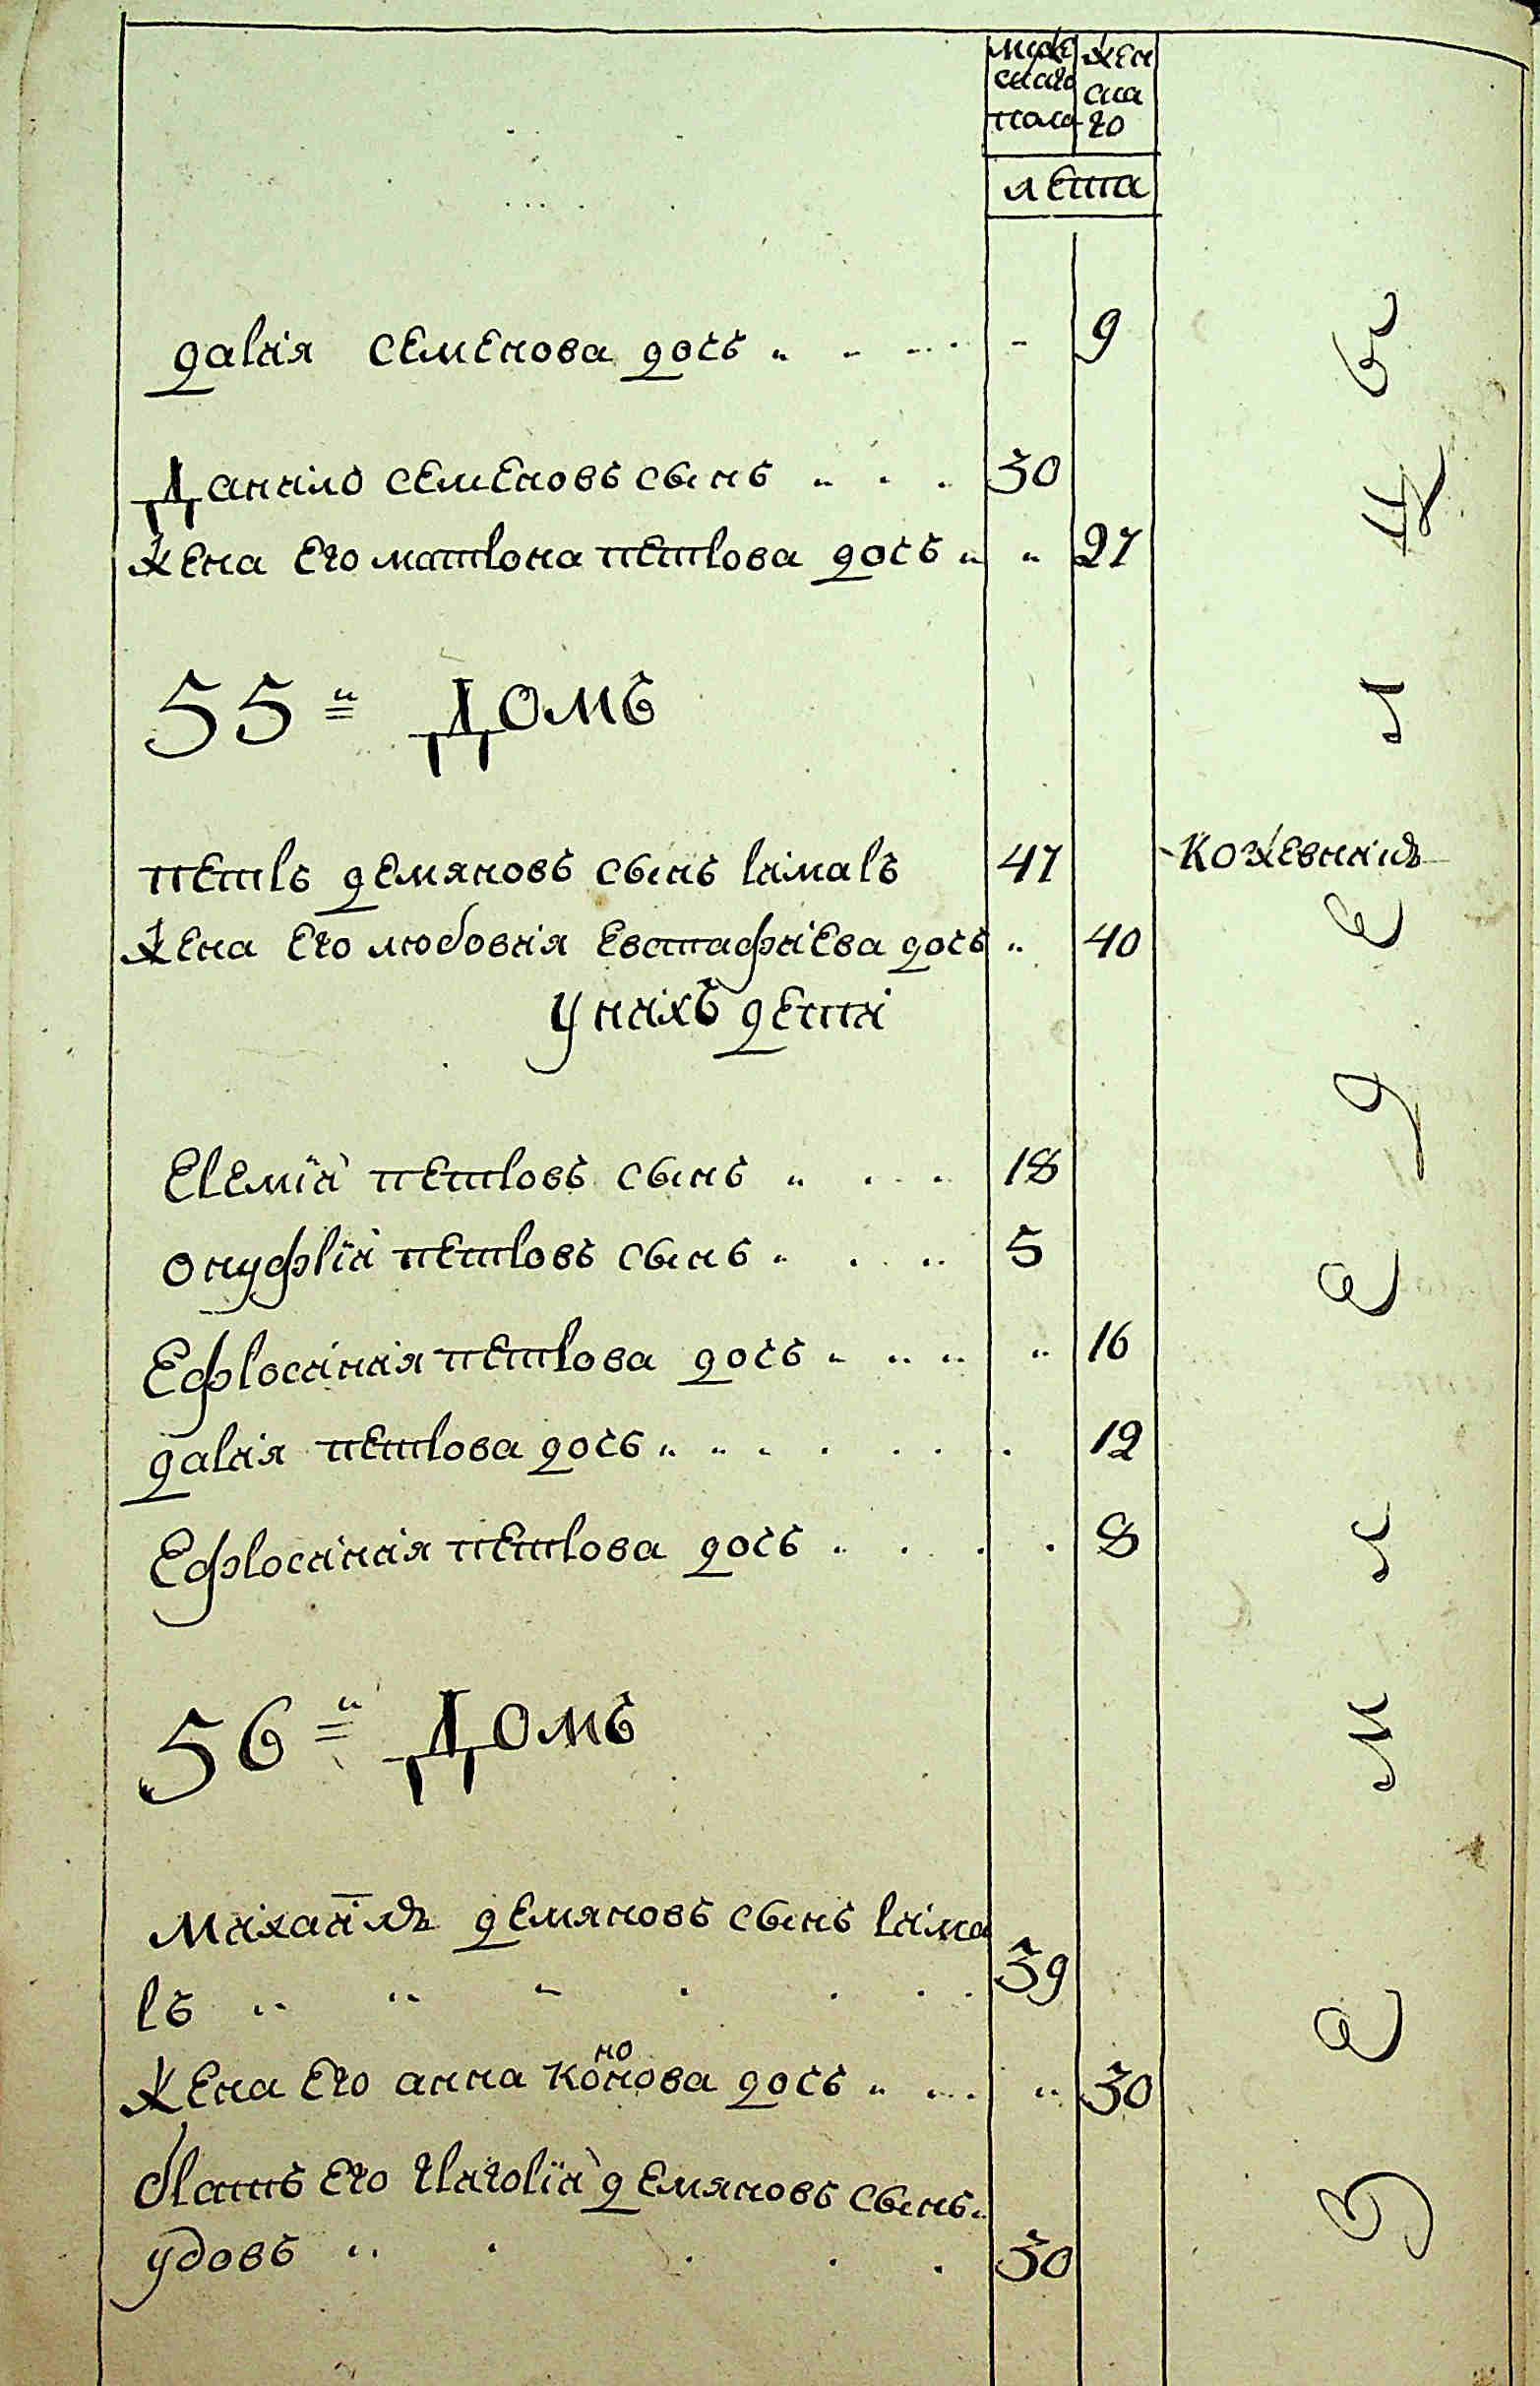 мужескаго пола женскаго
лета
дария семенова дочь 9
Данило семеновъ сынъ 30
жена его матрона петрова дочь 27
55й Домъ
петръ демяновъ сынъ римаръ 47 кожевникъ
жена его любовия евстафиева дочь 40
у нихъ дети
Еремїй петровъ сынъ 18
онуфрїй петровъ сынъ 5
Ефросиния петрова дочь 16
дария петрова дочь 12
Ефросиния петрова дочь 8
56й Домъ
михаилъ демяновъ сынъ рима
ръ 39
жена его анна кононова дочь 30
братъ его григорїй демяновъ сынъ
удовъ 30
земледелцъ